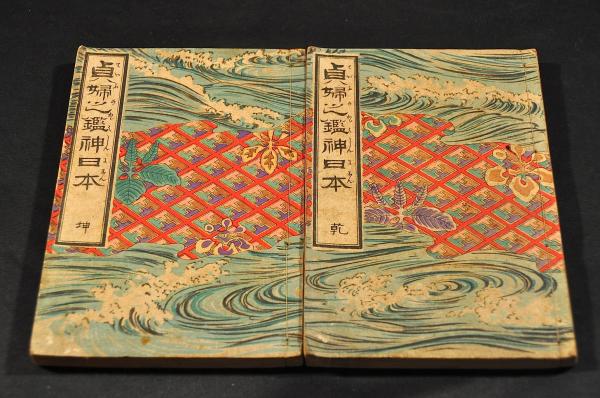 貞婦之鑑神日本
乾
貞婦之鑑神日本
坤